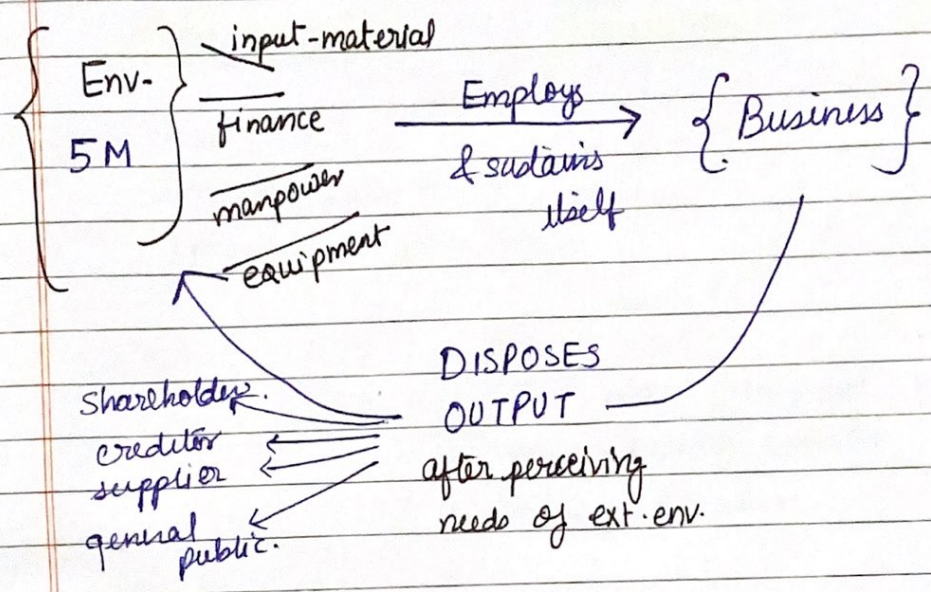 Env-
5 M
input-material
finance
manpower
equipment
Employs
& sustains
itself
Business
DISPOSES
OUTPUT
after perceiving
needs of ext. env.
shareholder.
creditor
supplier
general
public.